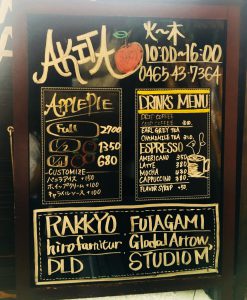 AKITA
火〜木
10:00~16:00
0465-43-7364
APPLEPIE
Full 2700
1/2 1350
1/4 680
CUSTOMIZE
バニラアイス +150
ホイップクリーム +100
キャラメルソース +100
DRINKS MENU
DRIP COFFEE
EARL GREY TEA
CHAMOMILE TEA
ESPRESSO
AMERICANO 350
LATTE
MOCHA
CAPPUCCINO 380
FLAVOR SYRUP +50
RAKKYO FUTAGAMI
hiro furnitur Glodal Arrow,
DLD STUDIO M'